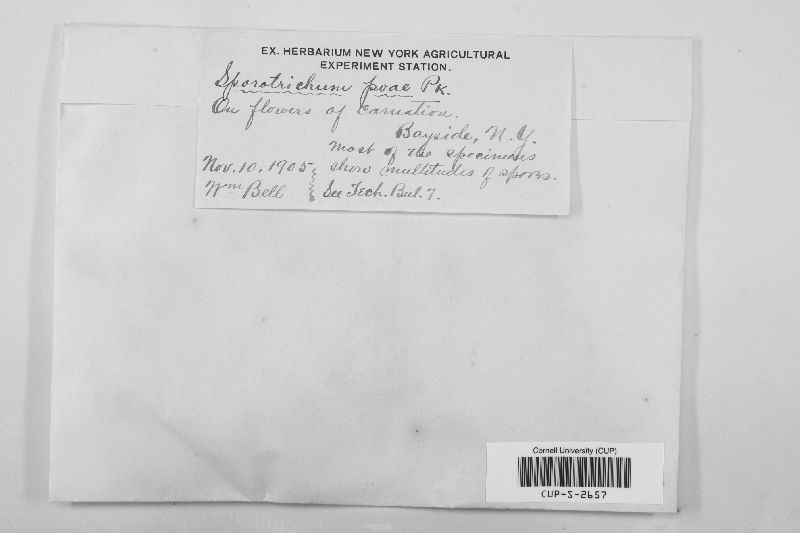 EX. HERBARIUM NEW YORK AGRICULTURAL
EXPERIMENT STATION.
Sporotrichum poae Pk.
On flowers of Carnation.
Bayside, N.Y.
Most of the specimens
Nov. 10, 1905, show multitudes of spores.
Wm Bell { See Tech. Bul. 7.
Cornell University (CUP)
CUP-S-2657